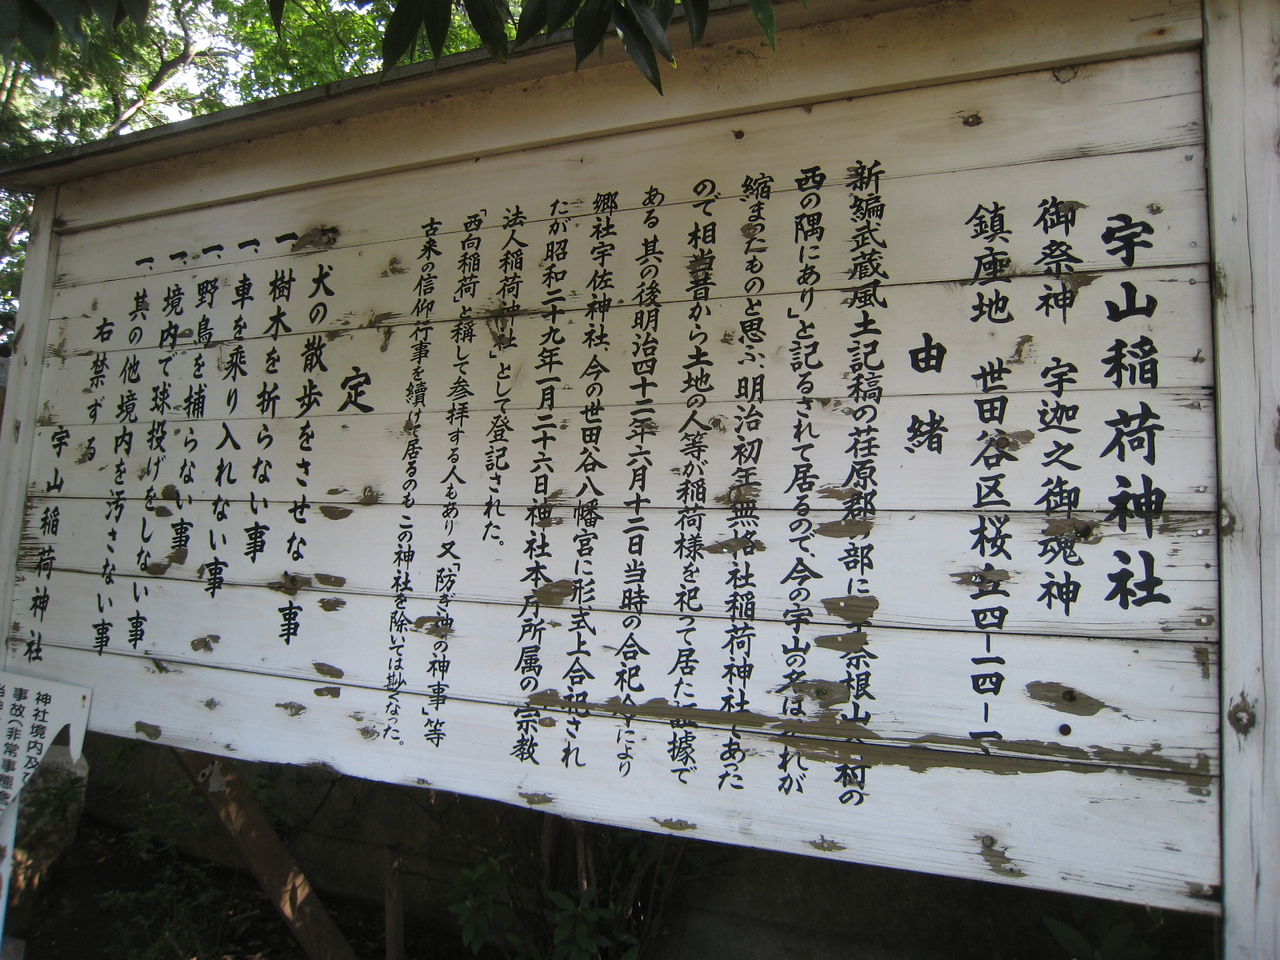 宇山稲荷神社
御祭神 宇迦之御魂神
鎮座地 世田谷区桜丘四ー一四ー一
由緒
新編武蔵風土記稿の荏原郡の部に 奈根山 村の
西の隅にあり」と記るされて居るので、今の宇山の名は れが
縮まったものと思ふ、明治初年無格社稲荷神社であった
ので相当昔から土地の人等が稲荷様を祀って居た証據で
ある 其の後明治四十二年六月十二日当時の合祀令により
郷社宇佐神社、今の世田谷八幡宮に形式上合祀され
たが昭和二十九年一月二十六日神社本庁所属の宗教
法人稲荷神社」として登記された。
「西向稲荷」と稱して参拝する人もあり又「防ぎ神の神事」等
古来の信仰行事を續けて居るのもこの神社を除いては尠くなった。
定
一、犬の散歩をさせない事
一、樹木を折らない事
一、車を乗り入れない事
一、野鳥を捕らない事
一、境内で球投げをしない事
一、其の他境内を汚さない事
右禁ずる
宇山稲荷神社
神社境内及び
事故(非常事態を